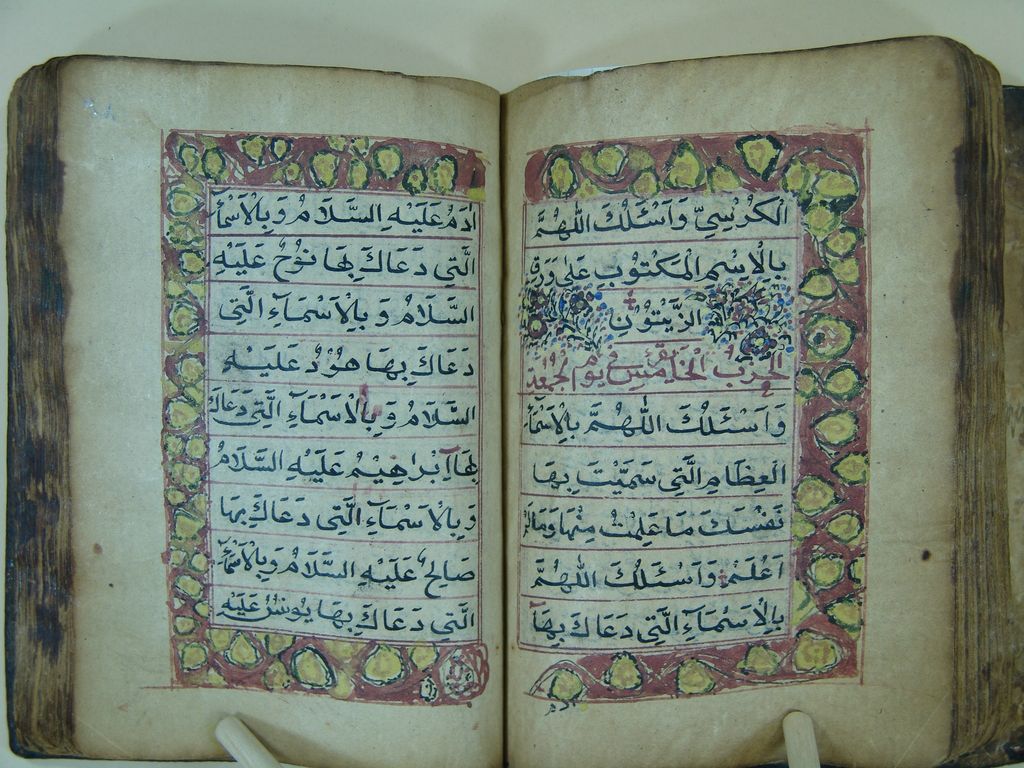 الْكُرْسِيِّ وَاَسْئَلُكَ اللّٰهُمَّ
بِالْاِسْمِ الْمَكْتُوْبِ عَلٰى وَرَقِ
الزَّيْتُوْنِ
الحزب الخامس في يوم الجمعة
وَاَسْئَلُكَ اللّٰهُمَّ بِالْاَسْمَآءِ
الْعِظَامِ الَّتِي سَمَّيْتَ بِهَا
نَفْسَكَ مَا عَلِمْتُ مِنْهَا وَمَا لَمْ
اَعْلَمْ وَاَسْئَلُكَ اللّٰهُمَّ
بِالْاَسْمَآءِ الَّتِي دَعَاكَ بِهَا
اٰدَمُ عَلَيْهِ السَّلَامُ وَبِالْاَسْمَآءِ
الَّتِي دَعَاكَ بِهَا نُوْحٌ عَلَيْهِ
السَّلَامُ وَبِالْاَسْمَآءِ الَّتِى
دَعَاكَ بِهَا هُوْدٌ عَلَيْهِ
السَّلَامُ وَبِالْاَسْمَآءِ الَّتِى دَعَاكَ
بِهَا اِبْرَاهِيْمُ عَلَيْهِ السَّلَامُ
وَبِالْاَسْمَآءِ الَّتِى دَعَاكَ بِهَا
صَالِحٌ عَلَيْهِ السَّلَامُ وَبِالْاَسْمَآءِ
الَّتِي دَعَاكَ بِهَا يُوْنُسُ عَلَيْهِ